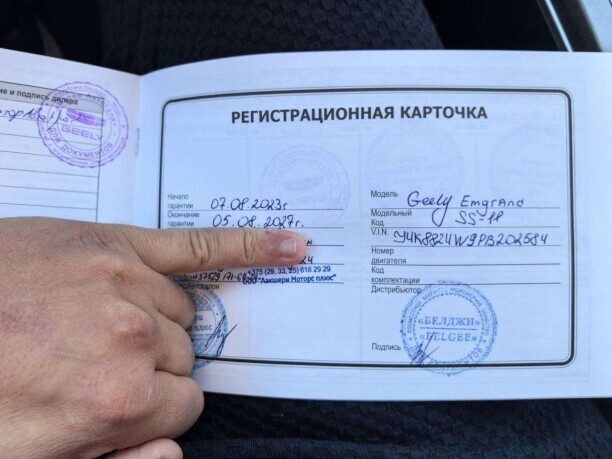 ие и подпись дилера
GEELY
ДЛЯ ДОКУМЕНТОВ
РЕГИСТРАЦИОННАЯ КАРТОЧКА
Начало гарантии 07.08.2023г
Окончание гарантии 05.08.2027г.
24
+375 (29, 33, 25) 618 29 29
ООО "Лакшери Моторс плюс"
Модель Geely Emgrand
Модельный Код SS-11
V.I.N. Y4K8824W9PB202584
Номер двигателя
Код комплектации
Дистрибьютор
«БЕЛДЖИ»
«BELGEE»
Подпись